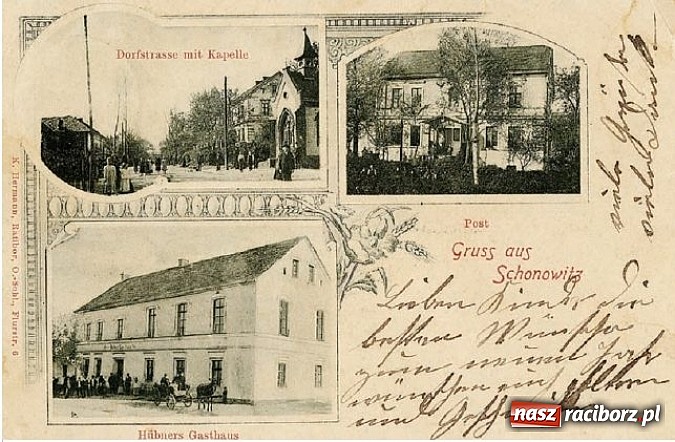 Dorfstrasse mit Kapelle
Post
Gruss aus
Schonowitz
K. Hermann, Ratibor, O.-Schl., Flurstr. 6
Hübners Gasthaus
viele Grüße
Lieben Kinder die
besten Wünsche
zum neuen Jahr
wünschen euch
und
nasz raciborz.pl